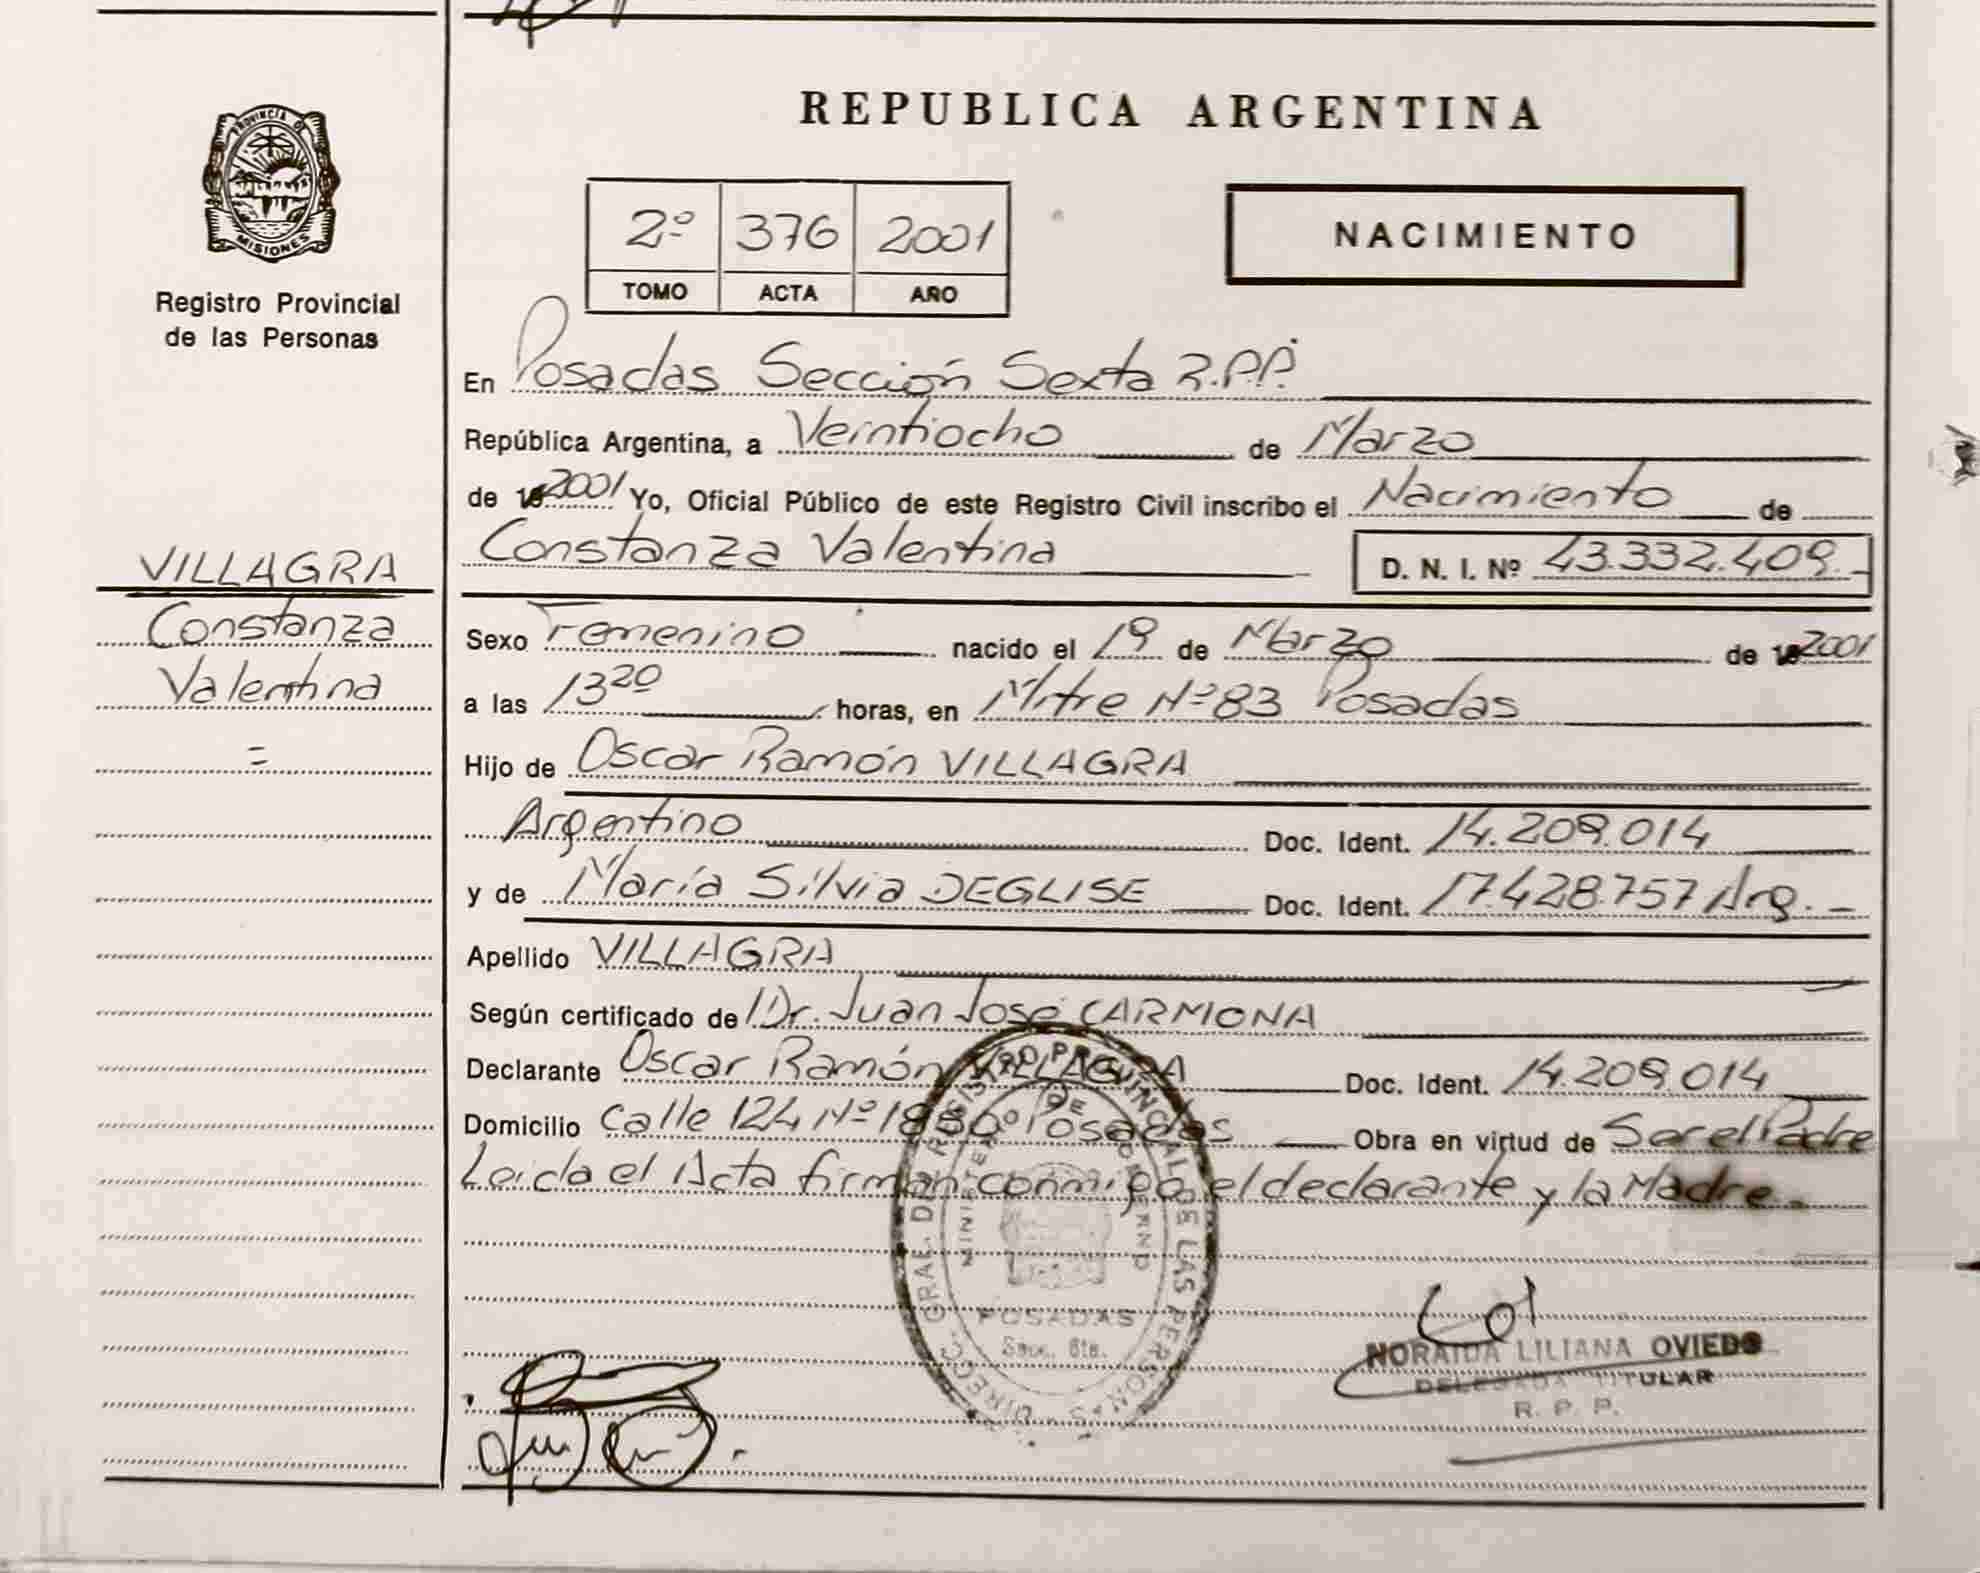 REPUBLICA ARGENTINA
PROVINCIA DE
MISIONES
Registro Provincial
de las Personas
2º 376 2001
TOMO ACTA AÑO
NACIMIENTO
En Posadas Sección Sexta R.P.P.
República Argentina, a Veintiocho de Marzo
de 2001 Yo, Oficial Público de este Registro Civil inscribo el Nacimiento de
Constanza Valentina D. N. I. Nº 43.332.409.-
VILLAGRA
Constanza
Valentina
=
Sexo Femenino nacido el 19 de Marzo de 2001
a las 13 20 horas, en Mitre Nº 83 Posadas
Hijo de Oscar Ramón VILLAGRA
Argentino Doc. Ident. 14.209.014
y de María Silvia DEGLISE Doc. Ident. 17.428.757 Arg. -
Apellido VILLAGRA
Según certificado de Dr. Juan José CARMONA
Declarante Oscar Ramón VILLAGRA Doc. Ident. 14.209.014
Domicilio Calle 124 Nº Posadas Obra en virtud de Ser el Padre
Leida el Acta firman conmigo el declarante y la Madre.-
DIREC. GRAL. DEL REGISTRO PROVINCIAL DE LAS PERSONAS
MINISTERIO DE GOBIERNO
POSADAS
Secc. 6ta.
NORAIDA LILIANA OVIEDO
DELEGADA TITULAR
R. P. P.